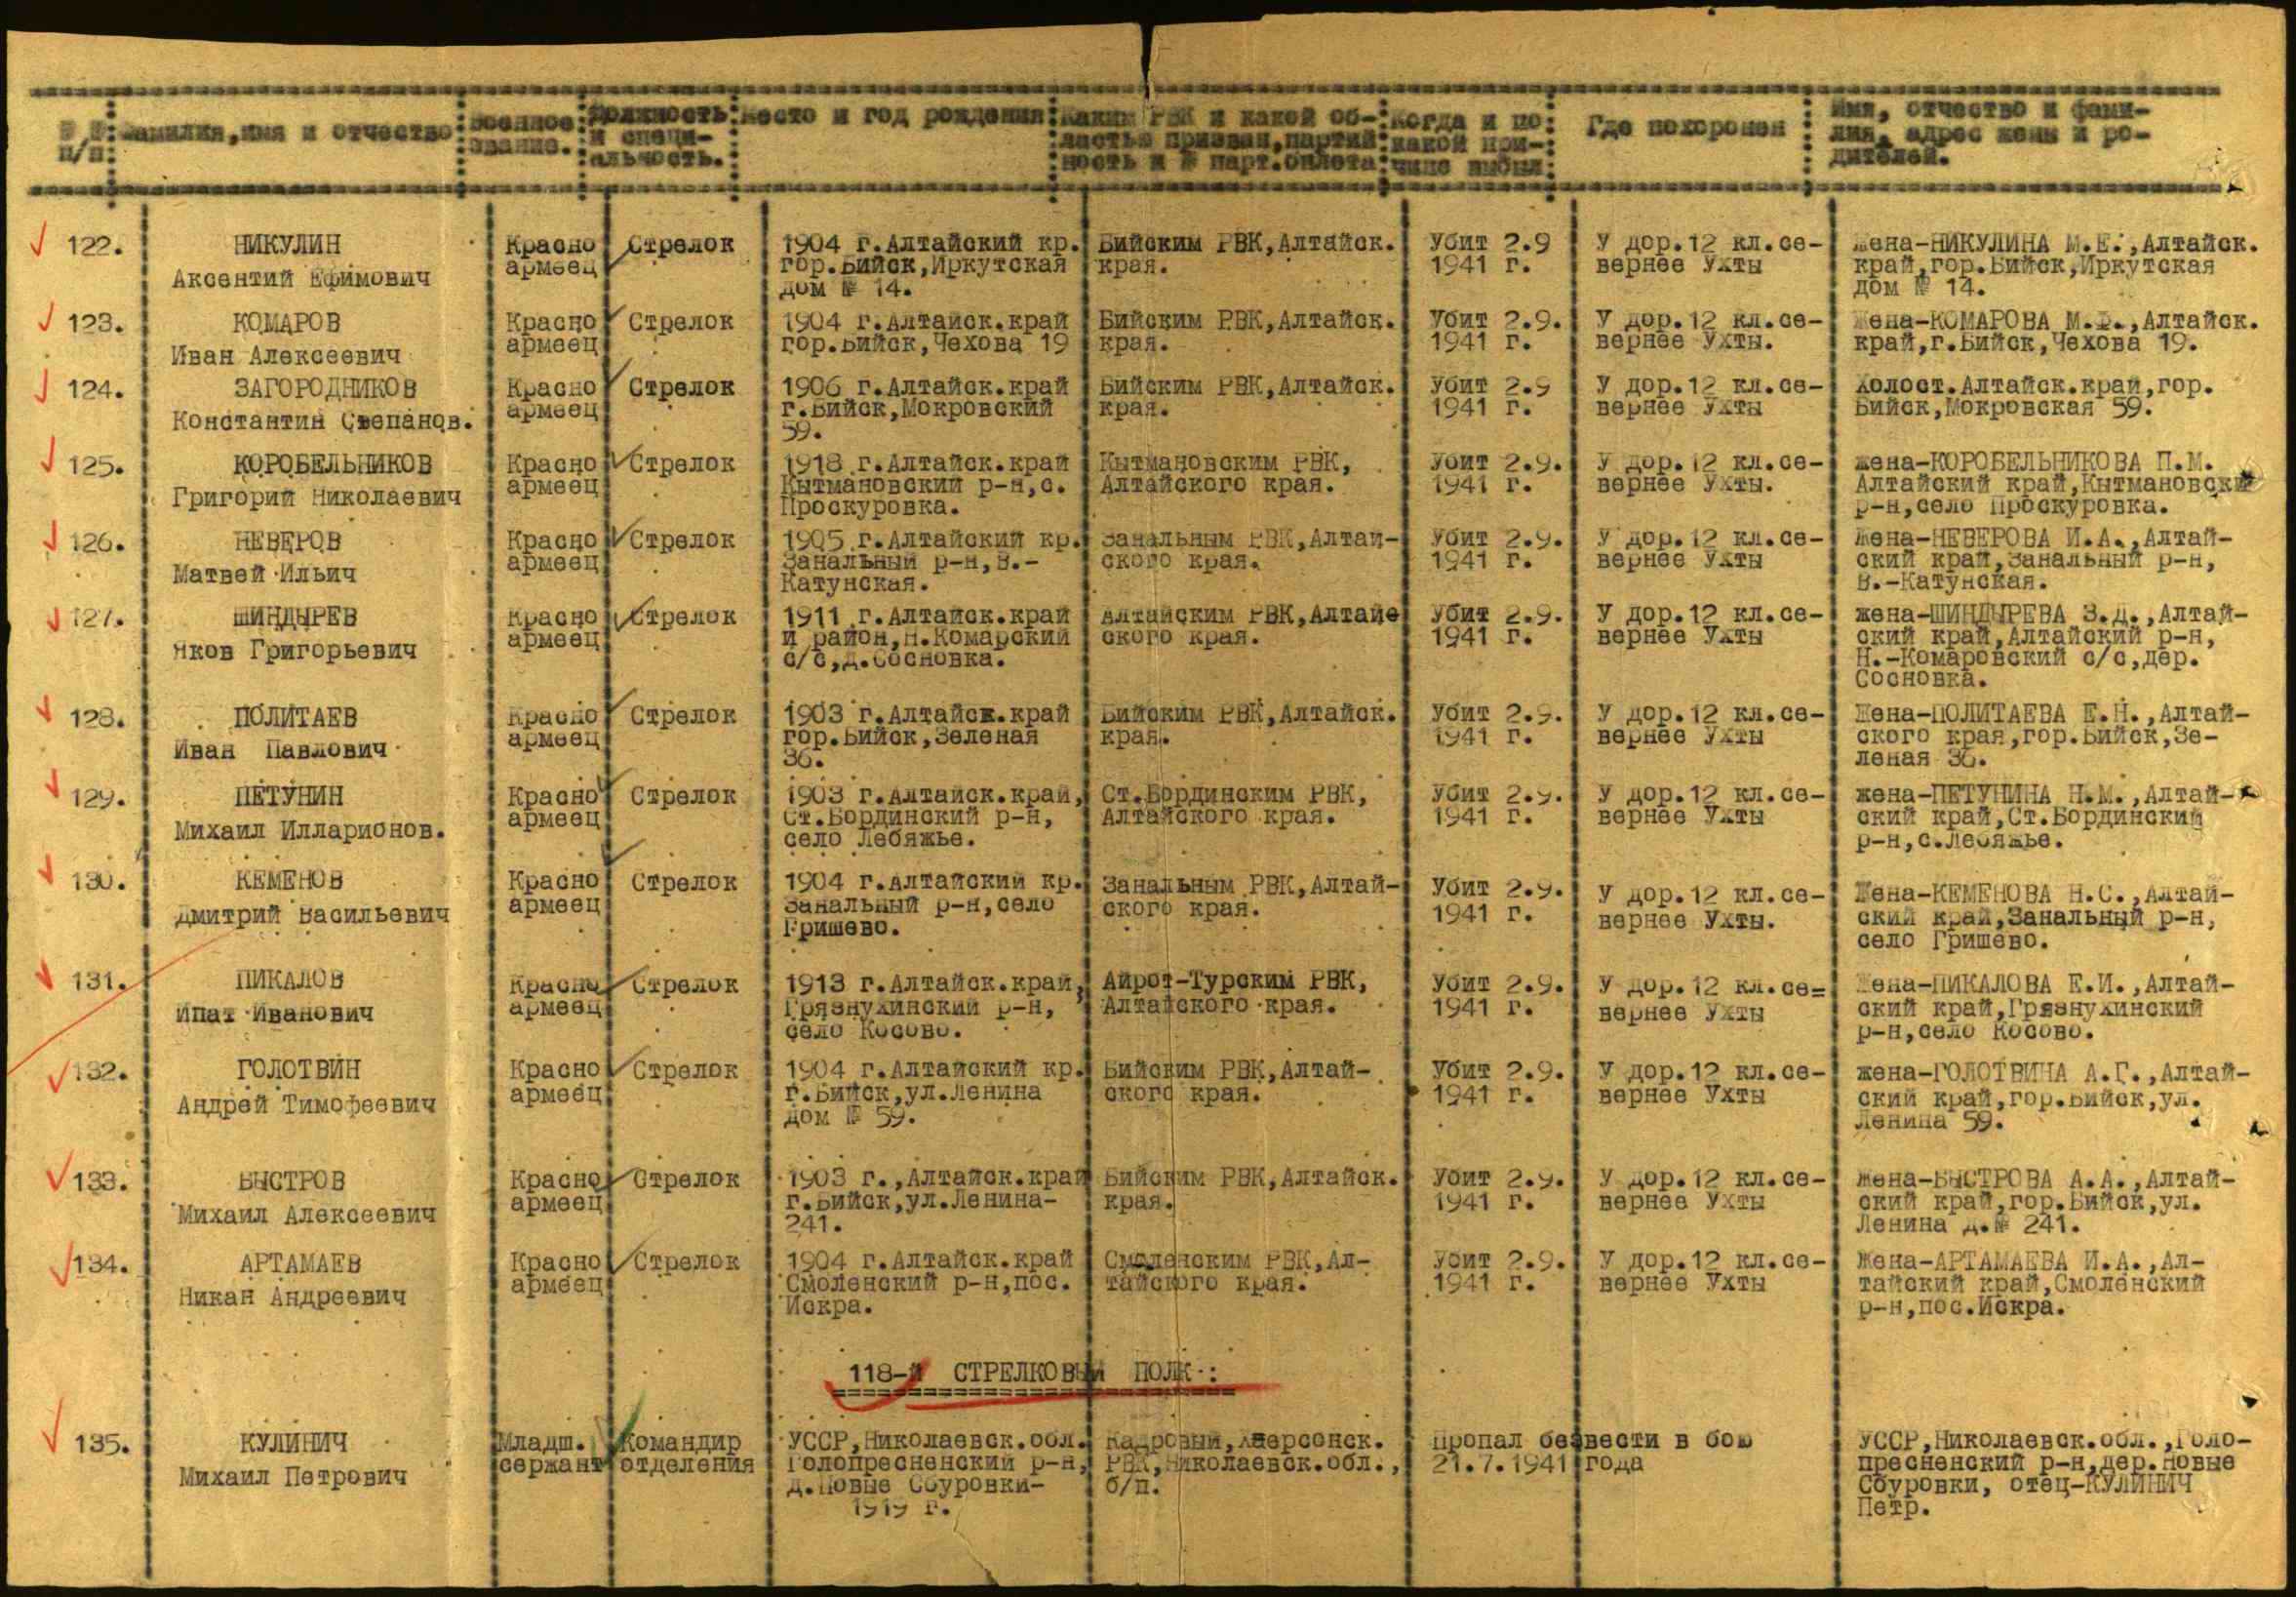 № №
п/п:
Фамилия, имя и отчество
Военное
звание.
Должность
и специ-
альность.
Место и год рождения
Каким РВК и какой об-
ластью призван, партий
ность и № парт.билета
Когда и по
какой при-
чине выбыл
Где похоронен
Имя, отчество и фами-
лия, адрес жены и ро-
дителей.
122.
НИКУЛИН
Аксентий Ефимович
Красно
армеец
Стрелок
1904 г.Алтайский кр.
гор.Бийск,Иркутская
дом № 14.
Бийским РВК,Алтайск.
края.
Убит 2.9
1941 г.
У дор.12 кл.се-
вернее Ухты
Жена-НИКУЛИНА М.Е.,Алтайск.
край,гор.Бийск,Иркутская
дом № 14.
123.
КОМАРОВ
Иван Алексеевич
Красно
армеец
Стрелок
1904 г.Алтайск.край
гор.Бийск,Чехова 19
Бийским РВК,Алтайск.
края.
Убит 2.9.
1941 г.
У дор.12 кл.се-
вернее Ухты.
Жена-КОМАРОВА М. ,Алтайск.
край,г.Бийск,Чехова 19.
124.
ЗАГОРОДНИКОВ
Константин Степанов.
Красно
армеец
Стрелок
1906 г.Алтайск.край
г.Бийск,Мокровский
59.
Бийским РВК,Алтайск.
края.
Убит 2.9
1941 г.
У дор.12 кл.се-
вернее Ухты
Холост.Алтайск.край,гор.
Бийск,Мокровская 59.
125.
КОРОБЕЛЬНИКОВ
Григорий Николаевич
Красно
армеец
Стрелок
1918 г.Алтайск.край
Кытмановский р-н,с.
Проскуровка.
Кытмановским РВК,
Алтайского края.
Убит 2.9.
1941 г.
У дор.12 кл.се-
вернее Ухты.
Жена-КОРОБЕЛЬНИКОВА П.М.
Алтайский край,Кытмановский
р-н,село Проскуровка.
126.
НЕВЕРОВ
Матвей Ильич
Красно
армеец
Стрелок
1905 г.Алтайский кр.
Занальный р-н,В.-
Катунская.
Занальным РВК,Алтай-
ского края.
Убит 2.9.
1941 г.
У дор.12 кл.се-
вернее Ухты
Жена-НЕВЕРОВА И.А.,Алтай-
ский край,Занальный р-н,
В.-Катунская.
127.
ШИНДЫРЕВ
Яков Григорьевич
Красно
армеец
Стрелок
1911 г.Алтайск.край
и район,Н.Комарский
с/с,д.Сосновка.
Алтайским РВК,Алтайс
ского края.
Убит 2.9.
1941 г.
У дор.12 кл.се-
вернее Ухты
жена-ШИНДЫРЕВА З.Д.,Алтай-
ский край,Алтайский р-н,
Н.-Комаровский с/с,дер.
Сосновка.
128.
ПОЛИТАЕВ
Иван Павлович
Красно
армеец
Стрелок
1903 г.Алтайск.край
гор.Бийск,Зеленая
36.
Бийским РВК,Алтайск.
края.
Убит 2.9.
1941 г.
У дор.12 кл.се-
вернее Ухты
Жена-ПОЛИТАЕВА Е.Н.,Алтай-
ского края,гор.Бийск,Зе-
леная 36.
129.
ПЕТУНИН
Михаил Илларионов.
Красно
армеец
Стрелок
1903 г.Алтайск.край,
Ст.Бординский р-н,
село Лебяжье.
Ст.Бординским РВК,
Алтайского края.
Убит 2.9.
1941 г.
У дор.12 кл.се-
вернее Ухты
жена-ПЕТУНИНА Н.М.,Алтай-
ский край,Ст.Бординский
р-н,с.Лебяжье.
130.
КЕМЕНОВ
Дмитрий Васильевич
Красно
армеец
Стрелок
1904 г.Алтайский кр.
Занальный р-н,село
Гришево.
Занальным РВК,Алтай-
ского края.
Убит 2.9.
1941 г.
У дор.12 кл.се-
вернее Ухты.
Жена-КЕМЕНОВА Н.С.,Алтай-
ский край,Занальный р-н,
село Гришево.
131.
ПИКАЛОВ
Ипат Иванович
Красно
армеец
Стрелок
1913 г.Алтайск.край,
Грязнухинский р-н,
село Косово.
Айрот-Турским РВК,
Алтайского края.
Убит 2.9.
1941 г.
У дор.12 кл.се=
вернее Ухты
Жена-ПИКАЛОВА Е.И.,Алтай-
ский край,Грязнухинский
р-н,село Косово.
132.
ГОЛОТВИН
Андрей Тимофеевич
Красно
армеец
Стрелок
1904 г.Алтайский кр.
г.Бийск,ул.Ленина
дом № 59.
Бийским РВК,Алтай-
ского края.
Убит 2.9.
1941 г.
У дор.12 кл.се-
вернее Ухты
жена-ГОЛОТВИНА А.Г.,Алтай-
ский край,гор.Бийск,ул.
Ленина 59.
133.
БЫСТРОВ
Михаил Алексеевич
Красно
армеец
Стрелок
1903 г.,Алтайск.край
г.Бийск,ул.Ленина-
241.
Бийским РВК,Алтайск.
края.
Убит 2.9.
1941 г.
У дор.12 кл.се-
вернее Ухты
жена-БЫСТРОВА А.А.,Алтай-
ский край,гор.Бийск,ул.
Ленина д.№ 241.
134.
АРТАМАЕВ
Никан Андреевич
Красно
армеец
Стрелок
1904 г.Алтайск.край
Смоленский р-н,пос.
Искра.
Смоленским РВК,Ал-
тайского края.
Убит 2.9.
1941 г.
У дор.12 кл.се-
вернее Ухты
Жена-АРТАМАЕВА И.А.,Ал-
тайский край,Смоленский
р-н,пос.Искра.
118-й СТРЕЛКОВЫЙ ПОЛК:
135.
КУЛИНИЧ
Михаил Петрович
Младш.
сержант
Командир
отделения
УССР,Николаевск.обл.
Голопресненский р-н,
д.Новые Сбуровки-
1919 г.
Кадровый,
РВК,Николаевск.обл.,
б/п.
Пропал безвести в бою
21.7.1941 года
УССР,Николаевск.обл.,Голо-
пресненский р-н,дер.Новые
Сбуровки, отец-КУЛИНИЧ
Петр.